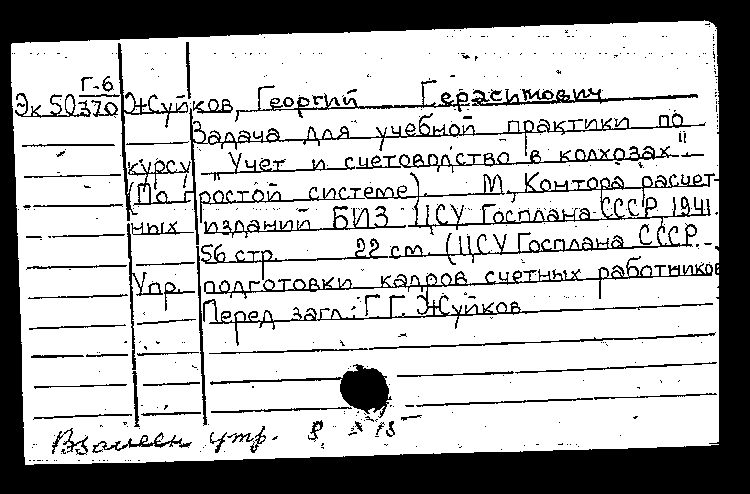 Г-6
Эк 50/370 Жуйков, Георгий Герасимович
Задача для учебной практики по
курсу „Учет и счетоводство в колхозах".
(По простой системе). М., Контора расчет-
ных изданий БИЗ ЦСУ Госплана СССР, 1941.
56 стр. 22 см. (ЦСУ Госплана СССР.
Упр. подготовки кадров счетных работников
Перед загл.: Г.Г. Жуйков
Взамен утр.